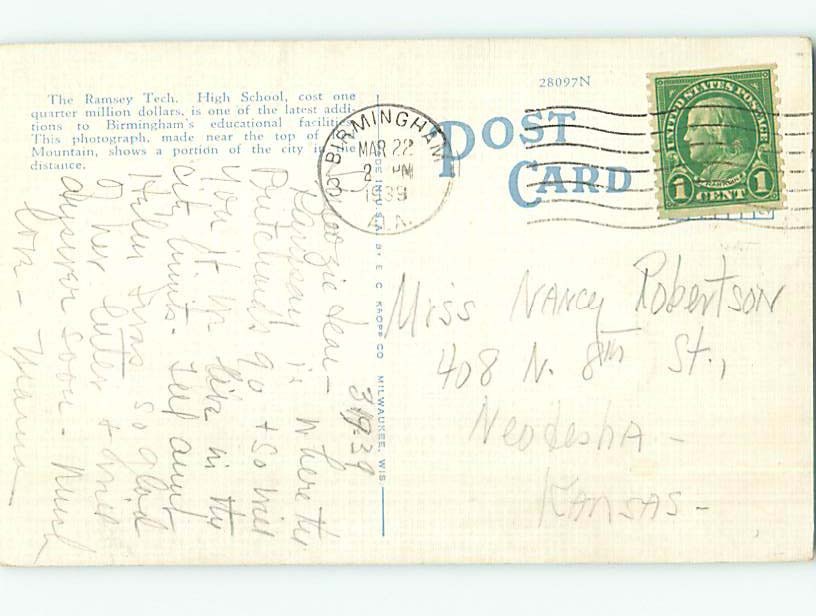 The Ramsey Tech. High School, cost one
quarter million dollars, is one of the latest addi-
tions to Birmingham's educational facilities.
This photograph, made near the top of
Mountain, shows a portion of the city in the
distance.
28097N
POST
CARD
BIRMINGHAM
MAR 22
2 PM
1939
ALA.
UNITED STATES POSTAGE
FRANKLIN
1 CENT 1
MADE IN U.S.A. BY E. C. KROPP CO. MILWAUKEE, WIS.
3-19-39
dear -
Ramsay is where the
go + so will
you if we live in the
city limits. Tell aunt
Helen I was so glad
her letter + will
answer soon - Much
love -
Miss Nancy Robertson
408 N. 8th St.,
Neodesha -
Kansas -